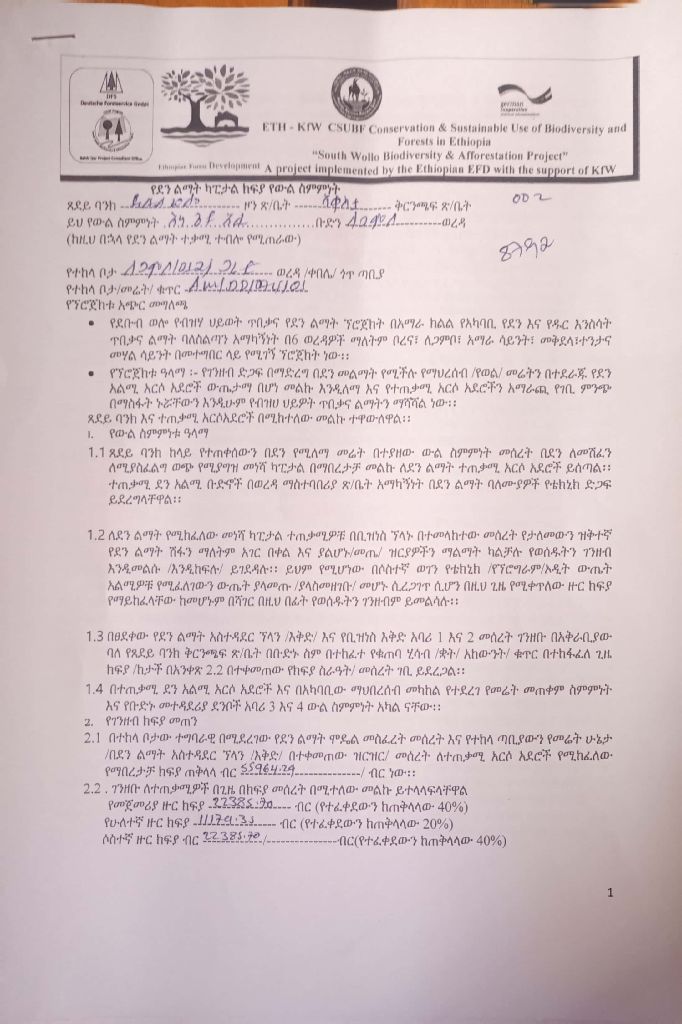 DFS
Deutsche Forstservice GmbH
german
cooperation
ETH - KfW CSUBF Conservation & Sustainable Use of Biodiversity and
Forests in Ethiopia
"South Wollo Biodiversity & Afforestation Project"
Ethiopian Forest Development A project implemented by the Ethiopian EFD with the support of KfW
የደን ልማት ካፒታል ክፍያ የውል ስምምነት
ጸደይ ባንክ ዞን ጽ/ቤት ቅርንጫፍ ጽ/ቤት 002
ይህ የውል ስምምነት ቡድን ወረዳ
(ከዚህ በኋላ የደን ልማት ተቃሚ ተብሎ የሚጠራው)
የተከላ ቦታ ወረዳ /ቀበሌ/ ጎጥ ጣቢያ
የተከላ ቦታ/መሬት/ ቁጥር
የፕሮጀክቱ አጭር መግለጫ
• የደቡብ ወሎ የብዝሃ ህይወት ጥበቃና የደን ልማት ፕሮጀክት በአማራ ክልል የአካባቢ የደን እና የዱር እንስሳት
ጥበቃና ልማት ባለስልጣን አማካኝነት በ6 ወረዳዎች ማለትም ቦረና፣ ሌጋምቦ፣ አማራ ሳይንት፣ መቅደላ፣ተንታና
መሃል ሳይንት በመተግበር ላይ የሚገኝ ፕሮጀክት ነው፡፡
• የፕሮጀክቱ ዓላማ ፡- የገንዘብ ድጋፍ በማድረግ በደን መልማት የሚችሉ የማህበረሰብ /የወል/ መሬትን በተደራጁ የደን
አልሚ አርሶ አደሮች ውጤታማ በሆነ መልኩ እንዲለማ እና የተጠቃሚ አርሶ አደሮችን አማራጪ የገቢ ምንጭ
በማስፋት ኑሯቸውን እንዲሁም የብዝሀ ህይዎት ጥበቃና ልማትን ማሻሻል ነው፡፡
ጸደይ ባንክ እና ተጠቃሚ አርሶአደሮች በሚከተለው መልኩ ተዋውለዋል፡፡
1. የውል ስምምነቱ ዓላማ
1.1 ጸደይ ባንክ ከላይ የተጠቀሰውን በደን የሚለማ መሬት በተያዘው ውል ስምምነት መሰረት በደን ለመሸፈን
ለሚያስፈልግ ወጭ የሚያግዝ መነሻ ካፒታል በማበረታቻ መልኩ ለደን ልማት ተጠቃሚ አርሶ አደሮች ይሰጣል፡፡
ተጠቃሚ ደን አልሚ ቡድኖች በወረዳ ማስተባበሪያ ጽ/ቤት አማካኝነት በደን ልማት ባለሙያዎች የቴክኒክ ድጋፍ
ይደረግላቸዋል፡፡
1.2 ለደን ልማት የሚከፈለው መነሻ ካፒታል ተጠቃሚዎቹ በቢዝነስ ኘላኑ በተመላከተው መሰረት የታለመውን ዝቅተኛ
የደን ልማት ሽፋን ማለትም አገር በቀል እና ያልሆኑ/መጤ/ ዝርያዎችን ማልማት ካልቻሉ የወሰዱትን ገንዘብ
እንዲመልሱ /እንዲከፍሉ/ ይገደዳሉ፡፡ ይህም የሚሆነው በሶስተኛ ወገን የቴክኒክ /የፕሮግራም/ኦዲት ውጤት
አልሚዎቹ የሚፈለገውን ውጤት ያላመጡ /ያላስመዘገቡ/ መሆኑ ሲረጋገጥ ሲሆን በዚህ ጊዜ የሚቀጥለው ዙር ክፍያ
የማይከፈላቸው ከመሆኑም በሻገር በዚህ በፊት የወሰዱትን ገንዘብም ይመልሳሉ፡፡
1.3 በፀደቀው የደን ልማት አስተዳደር ኘላን /እቅድ/ እና የቢዝነስ እቅድ አባሪ 1 እና 2 መሰረት ገንዘቡ በአቅራቢያው
ባለ የጸደይ ባንክ ቅርንጫፍ ጽ/ቤት በቡድኑ ስም በተከፈተ የቁጠባ ሂሳብ /ቋት/ አካውንት/ ቁጥር በተከፋፈለ ጊዜ
ክፍያ /ከታች በአንቀጽ 2.2 በተቀመጠው የክፍያ ስራዓት/ መሰረት ገቢ ይደረጋል፡፡
1.4 በተጠቃሚ ደን አልሚ አርሶ አደሮች እና በአካባቢው ማህበረሰብ መካከል የተደረገ የመሬት መጠቀም ስምምነት
እና የቡድኑ መተዳደሪያ ደንቦች አባሪ 3 እና 4 ውል ስምምነት አካል ናቸው፡፡
2. የገንዘብ ክፍያ መጠን
2.1 በተከላ ቦታው ተግባራዊ በሚደረገው የደን ልማት ሞዴል መስፈረት መሰረት እና የተከላ ጣቢያውን የመሬት ሁኔታ
/በደን ልማት አስተዳደር ኘላን /እቅድ/ በተቀመጠው ዝርዝር/ መሰረት ለተጠቃሚ አርሶ አደሮች የሚከፈለው
የማበረታቻ ክፍያ ጠቅላላ ብር 55964.29/ ብር ነው፡፡
2.2 . ገንዘቡ ለተጠቃሚዎች በጊዜ በክፍያ መሰረት በሚተለው መልኩ ይተላላፍላቸዋል
የመጀመሪያ ዙር ክፍያ 22385.70 ብር (የተፈቀደውን ከጠቅላላው 40%)
የሁለተኛ ዙር ክፍያ ብር (የተፈቀደውን ከጠቅላላው 20%)
ሶስተኛ ዙር ክፍያ ብር 22385.70/ ብር(የተፈቀደውን ከጠቅላላው 40%)
1